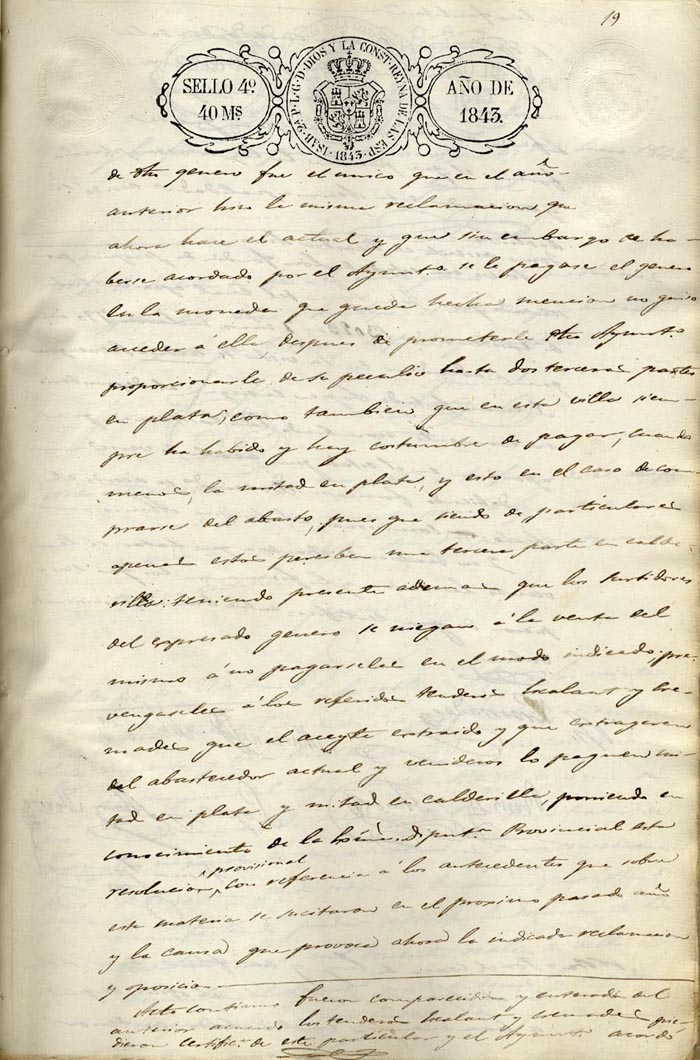 19
SELLO 4º
40 Mˢ
ISAB. 2ª P. L. G. D. DIOS Y LA CONST. REYNA DE LAS ESP.
1843.
AÑO DE
1843.
de dho genero fue el unico que en el año
anterior hizo la misma reclamacion que
ahora hace el actual y que sin embargo de ha-
berse acordado por el Ayuntº se le pagase el genero
en la moneda que queda hecha mencion no quiso
acceder á ella despues de prometerle dho Ayuntº
proporcionarle de su peculio hasta dos terceras partes
en plata, como tambien que en esta villa siem-
pre ha habido y hay costumbre de pagar, cuando
menos, la mitad en plata, y esto en el caso de com-
prarse del abasto, pues que siendo de particulares
apenas estos perciben una tercera parte en calde-
rilla: teniendo presente ademas que los surtidores
del expresado genero se niegan á la venta del
mismo á no pagarseles en el modo indicado, pre-
vengaseles á los referidos tenderos y
que el aceyte extraido y que extrageren
del abastecedor actual y venideros lo paguen mi-
tad en plata y mitad en calderilla, poniendo en
conocimiento de la Diputª Provincial esta
resolucion provisional, con referencia á los antecedentes que sobre
esta materia se suscitaron en el proximo pasado año
y la causa que provoca ahora la indicada reclamacion
y oposicion
Acto continuo fueron comparecidos y enterados del
anterior acuerdo los tenderos y
certific.ⁿ de este particular y el Ayuntº acordó